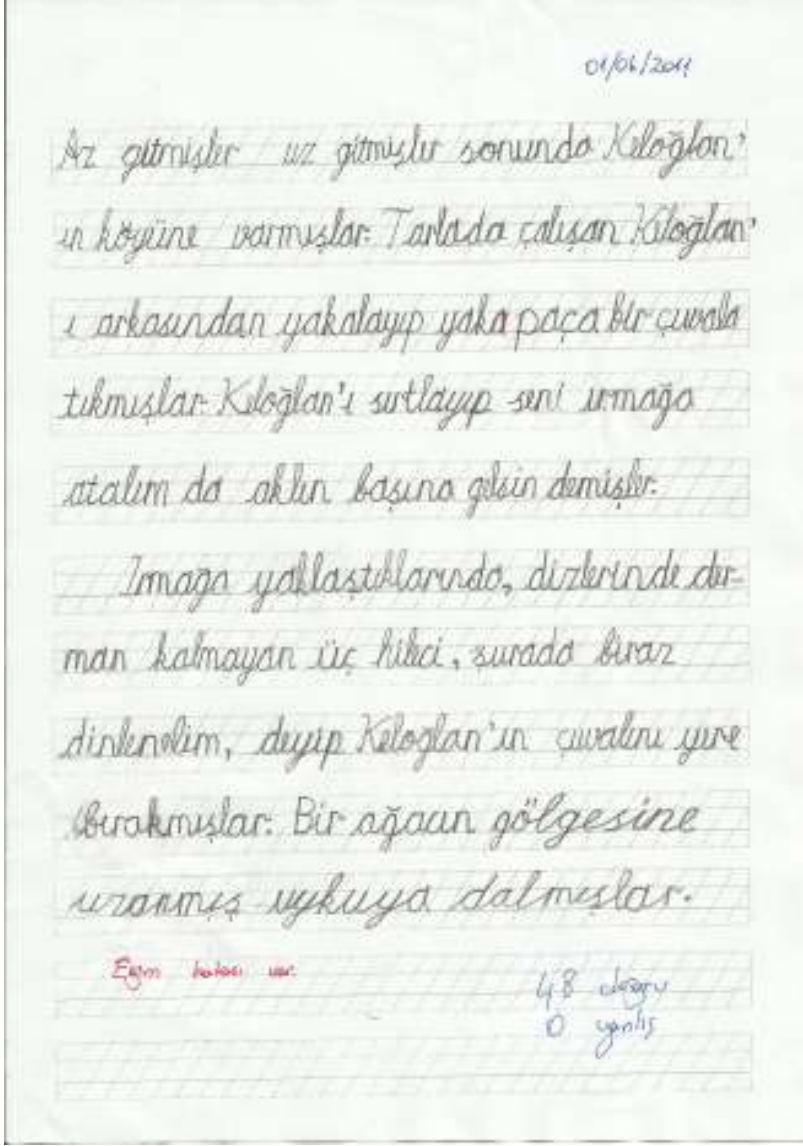 01/06/2011
Az gitmişler uz gitmişler sonunda Keloğlan'
ın köyüne varmışlar. Tarlada çalışan Keloğlan'
ı arkasından yakalayıp yaka paça bir çuvala
tıkmışlar. Keloğlan'ı sırtlayıp seni ırmağa
atalım da aklın başına gelsin demişler.
Irmağa yaklaştıklarında, dizlerinde der-
man kalmayan üç hileci, şurada biraz
dinlenelim, deyip Keloğlan'ın çuvalını yere
bırakmışlar. Bir ağacın gölgesine
uzanmış uykuya dalmışlar.
Eğim hatası var.
48 doğru
0 yanlış